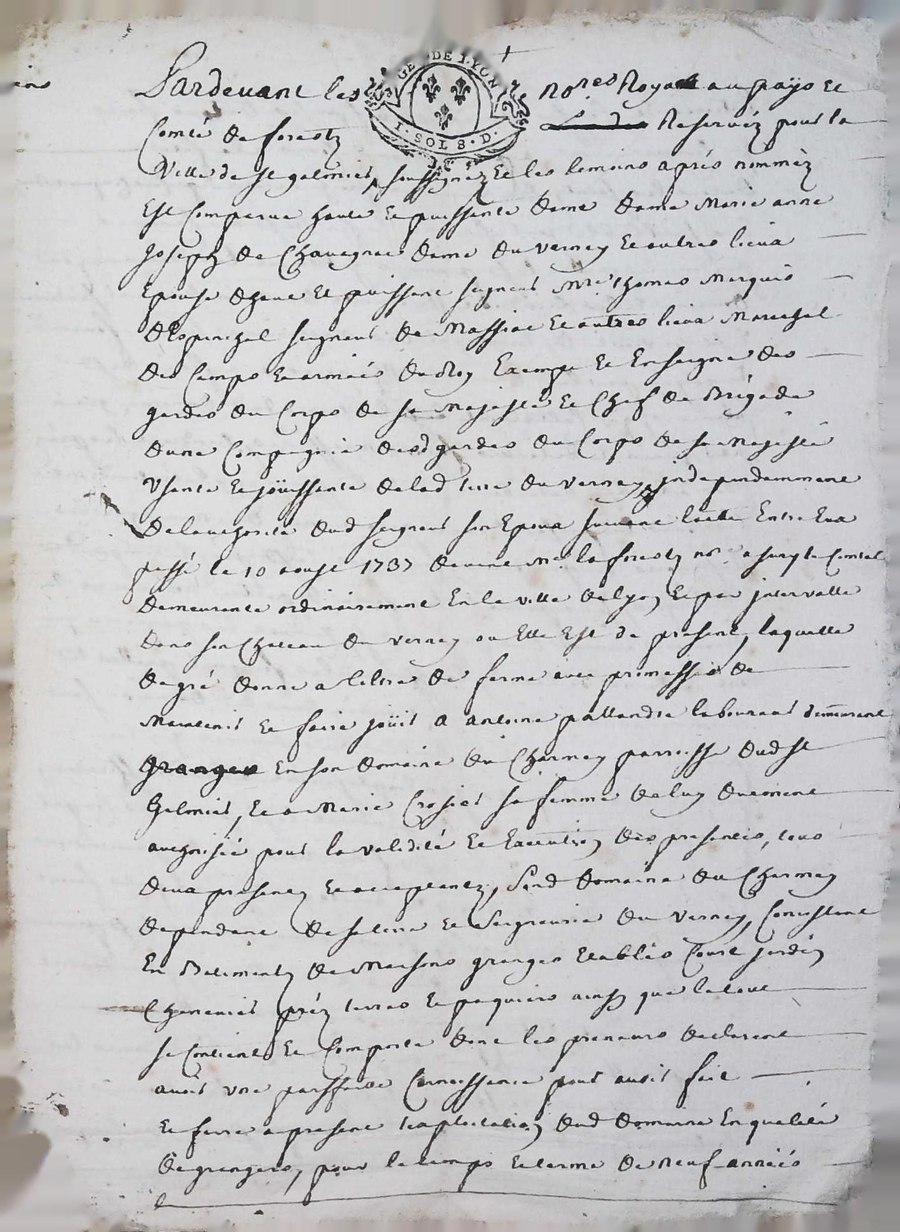 GE DE LYON
I · SOL 8 · D ·
Pardevant les No.res Royaux au pays Et
Comté de forestz Reservéz pour la
Ville de st galmier, soussignez Et les temoins aprés nomméz
Est Comparue haute Et puissante dame dame Marie anne
Joseph de Chavagnac dame du verney Et autres lieux
Epouse d'haut Et puissant seigneur M.re thomas Marquis
d'Espinchal seigneur de Massiac Et autres lieux Marechal
des Camps Et armées du Roy Exempt Et Enseigne des
gardes du Corps de sa Majesté Et Chef de Brigade
d'une Compagnie desd gardes du Corps de sa Majesté
Usante Et joüissante de lad terre du verney, independamment
de l'authorité dud seigneur son Epoux suivant l'acte Entre Eux
passé le 10 aoust 1737 devant M.e la forestz no.re a sury le Comtal
demeurante ordinairement En la ville de lyon Et par intervalle
dans son Chateau du verney ou Elle Est de present, laquelle
de gré donne a titre de ferme avec promesse de
Maintenir Et faire joüir a antoine pallandre laboureur demeurant
granger En son domaine du Charmey parroisse dud st
Galmier, Et a Marie Crosier sa femme de luy düement
authorisée pour la validité Et Execution des presentes, tous
deux presentz Et acceptantz, led domaine du Charmey
dependant de sa terre Et Seigneurie du verney, Consistant
En Batimentz de Maisons granges Etables Court jardin
Chenevier préz terres Et paquiers ainsy que le tout
se Contient Et Comporte dont les preneurs declarent
avoir une parffaite Connoissance pour avoir fait
Et faire a present l'exploitation dud domaine En qualité
de grangers, pour le temps Et terme de neuf années